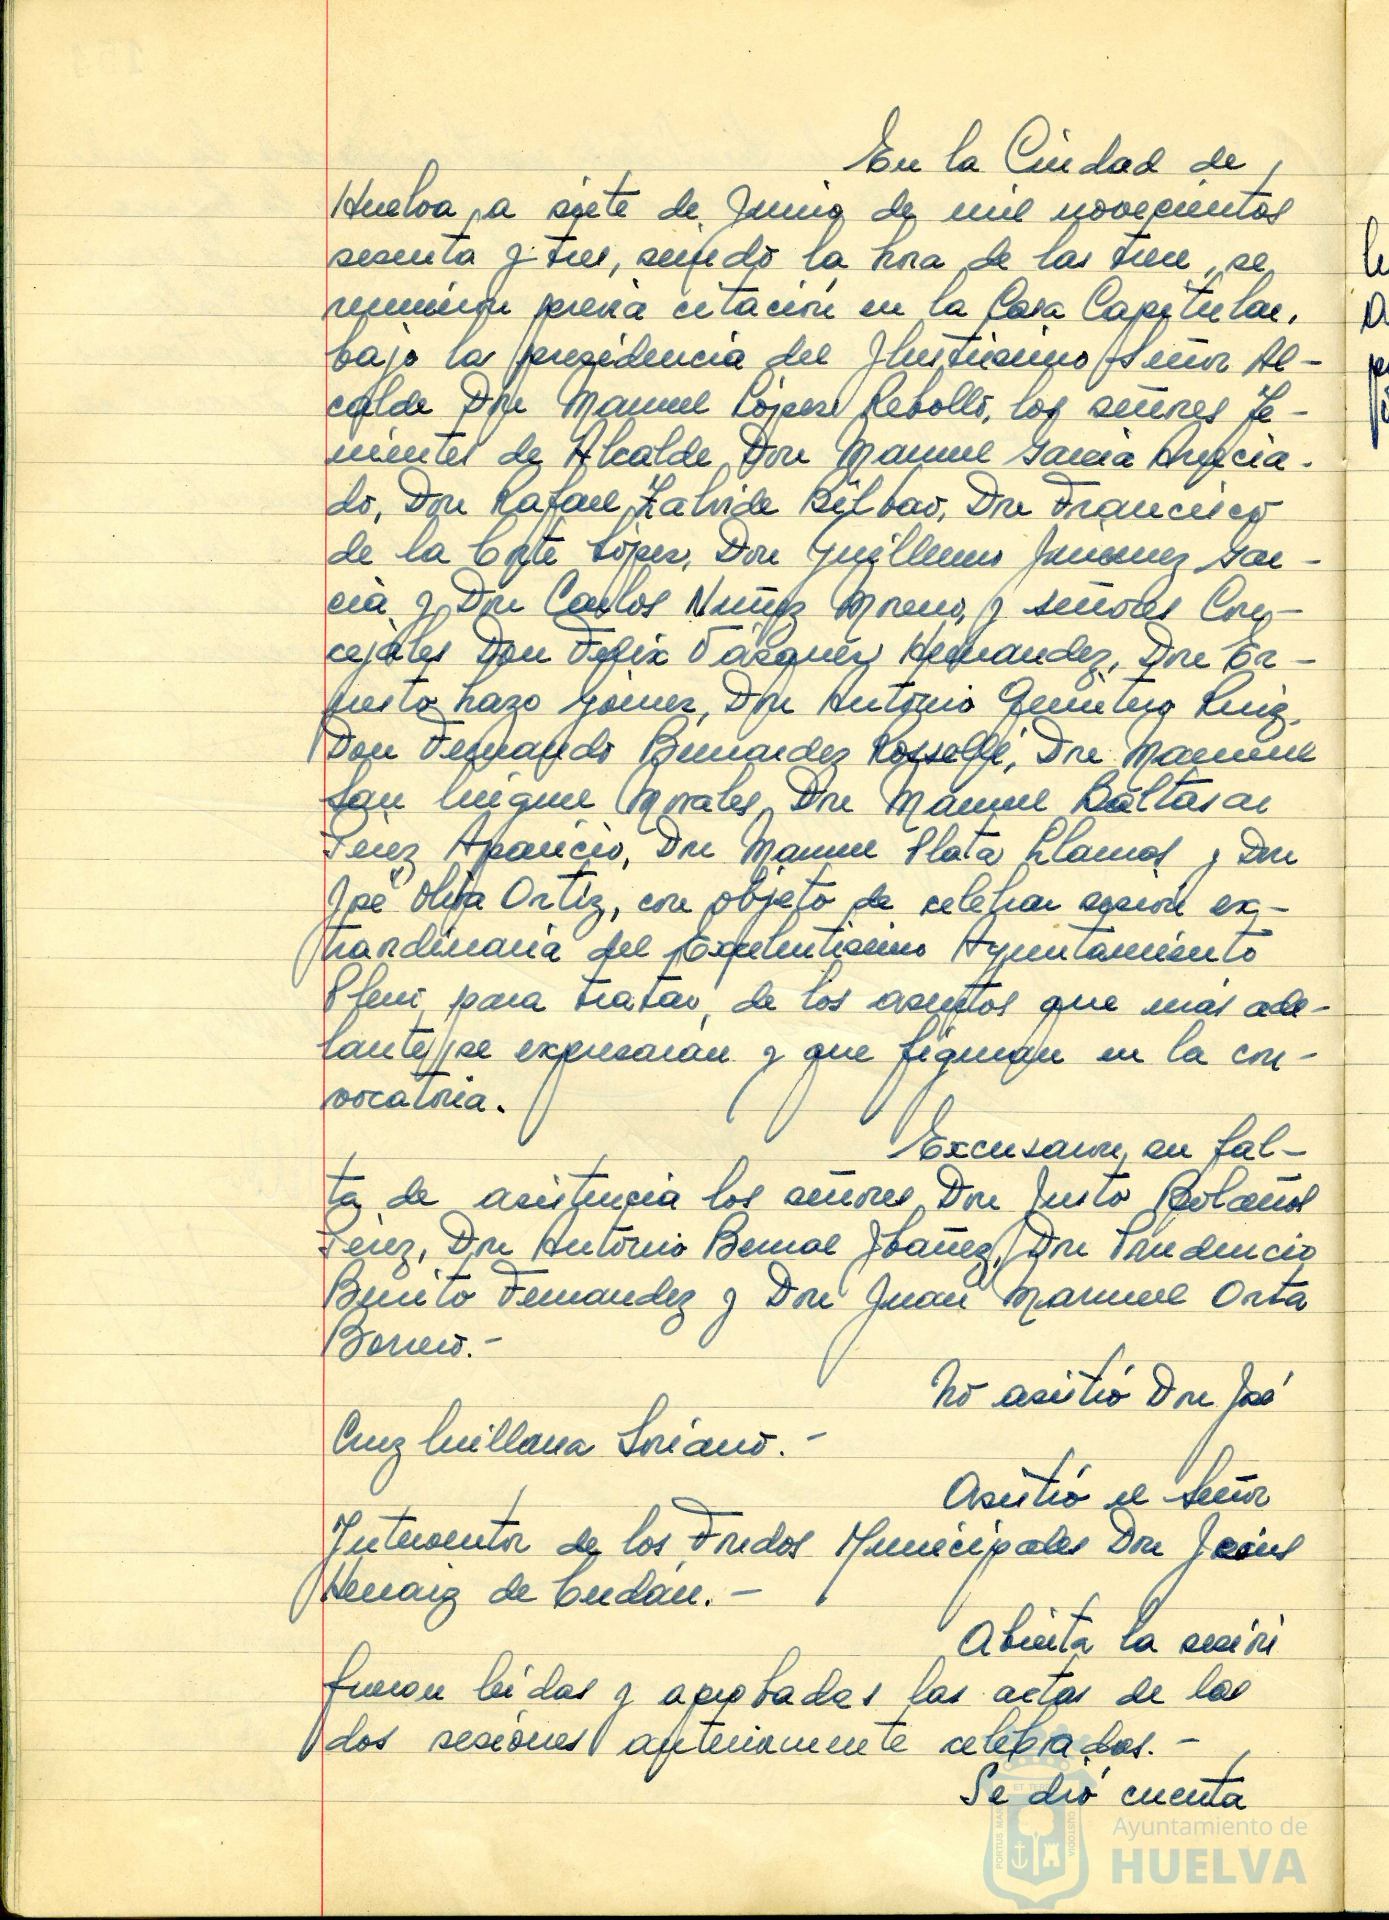 En la Ciudad de
Huelva, a siete de Junio de mil novecientos
sesenta y tres, siendo la hora de las trece, se
reunieron previa citación en la Casa Capitular,
bajo la presidencia del Ilustrisimo Señor Al-
calde Don Manuel López Rebollo, los señores Te-
nientes de Alcalde Don Manuel Garcia Anuncia-
do, Don Rafael Zalvide Bilbao, Don Francisco
de la Corte López, Don Guillermo Jimenez Gar-
cia y Don Carlos Nuñez Moreno, y señores Con-
cejales Don Felix Vázquez Hernandez, Don Er-
nesto Lazo Gómez, Don Antonio Quintero Ruiz,
Don Fernando Bermudez Rosselló, Don Manuel
San Miguel Morales, Don Manuel Baltasar
Pérez Aparicio, Don Manuel Plata Llamas y Don
José Oliva Ortiz, con objeto de celebrar sesión ex-
traordinaria del Excelentisimo Ayuntamiento
Pleno para tratar de los asuntos que más ade-
lante se expresarán y que figuran en la con-
vocatoria.
Excusaron su fal-
ta de asistencia los señores Don Justo Bolaños
Pérez, Don Antonio Bernal Ibañez, Don Prudencio
Benito Fernandez y Don Juan Manuel Orta
Borrero.-
No asistió Don José
Cruz Luillana Soriano.-
Asistió el Señor
Interventor de los Fondos Municipales Don Jesus
Hernaiz de
Abierta la sesión
fueron leidas y aprobadas las actas de las
dos sesiones anteriormente celebradas.-
Se dió cuenta
Ayuntamiento de
HUELVA